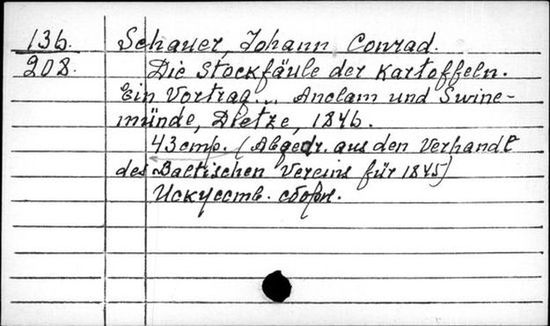 136. Schauer, Johann Conrad.
208. Die Stockfäule der Kartoffeln.
Ein Vortrag... Anclam und Swine-
münde, Dietze, 1846.
43 стр. (Abgedr. aus den Verhandl
des Baltischen Vereins für 1845)
Искусств. сборн.